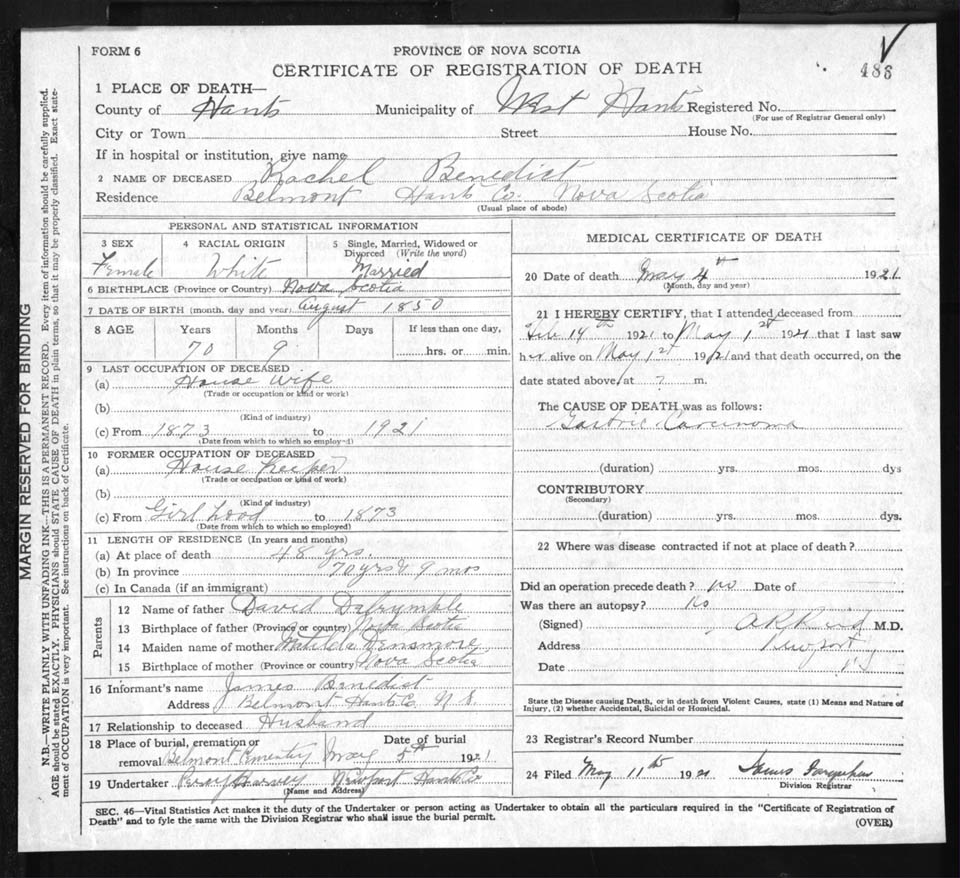 FORM 6
PROVINCE OF NOVA SCOTIA
CERTIFICATE OF REGISTRATION OF DEATH
486
1 PLACE OF DEATH—
County of Hants Municipality of West Hants Registered No.
(For use of Registrar General only)
City or Town Street House No.
If in hospital or institution, give name
2 NAME OF DECEASED Rachel Benedict
Residence Belmont Hants Co. Nova Scotia
(Usual place of abode)
PERSONAL AND STATISTICAL INFORMATION
3 SEX 4 RACIAL ORIGIN 5 Single, Married, Widowed or
Divorced (Write the word)
Female White Married
6 BIRTHPLACE (Province or Country) Nova Scotia
7 DATE OF BIRTH (month, day and year) August 1850
8 AGE Years Months Days If less than one day,
70 9 hrs. or min.
9 LAST OCCUPATION OF DECEASED
(a) House wife
(Trade or occupation or kind or work)
(b)
(Kind of industry)
(c) From 1873 to 1921
(Date from which to which so employed)
10 FORMER OCCUPATION OF DECEASED
(a) House keeper
(Trade or occupation or kind of work)
(b)
(Kind of industry)
(c) From Girl hood to 1873
(Date from which to which so employed)
11 LENGTH OF RESIDENCE (In years and months)
(a) At place of death 48 yrs.
(b) In province 70 yrs & 9 mos
(c) In Canada (if an immigrant)
Parents
12 Name of father David Dalrymple
13 Birthplace of father (Province or country) Nova Scotia
14 Maiden name of mother Matilda Densmore
15 Birthplace of mother (Province or country) Nova Scotia
16 Informant's name James Benedict
Address Belmont Hants Co. N S.
17 Relationship to deceased Husband
18 Place of burial, cremation or Date of burial
removal Belmont Cemetery May 5th 1921
19 Undertaker Percy Harvey Newport Hants Co
(Name and Address)
MEDICAL CERTIFICATE OF DEATH
20 Date of death May 4th 1921
(Month, day and year)
21 I HEREBY CERTIFY, that I attended deceased from
Feb 14th 1921 to May 1st 1921 that I last saw
her alive on May 1st 1921 and that death occurred, on the
date stated above, at ? m.
The CAUSE OF DEATH was as follows:
Gastric Carcinoma
(duration) yrs. mos. dys
CONTRIBUTORY
(Secondary)
(duration) yrs. mos. dys.
22 Where was disease contracted if not at place of death?
Did an operation precede death? no Date of
Was there an autopsy? no
(Signed) M.D.
Address Newport
Date
State the Disease causing Death, or in death from Violent Causes, state (1) Means and Nature of
Injury, (2) whether Accidental, Suicidal or Homicidal.
23 Registrar's Record Number
24 Filed May 11th 1921 James
Division Registrar
SEC. 46—Vital Statistics Act makes it the duty of the Undertaker or person acting as Undertaker to obtain all the particulars required in the "Certificate of Registration of
Death" and to fyle the same with the Division Registrar who shall issue the burial permit.
(OVER)
MARGIN RESERVED FOR BINDING
N.B.—WRITE PLAINLY WITH UNFADING INK—THIS IS A PERMANENT RECORD. Every item of information should be carefully supplied.
AGE should be stated EXACTLY. PHYSICIANS should STATE CAUSE OF DEATH in plain terms, so that it may be properly classified. Exact state-
ment of OCCUPATION is very important. See instructions on back of Certificate.